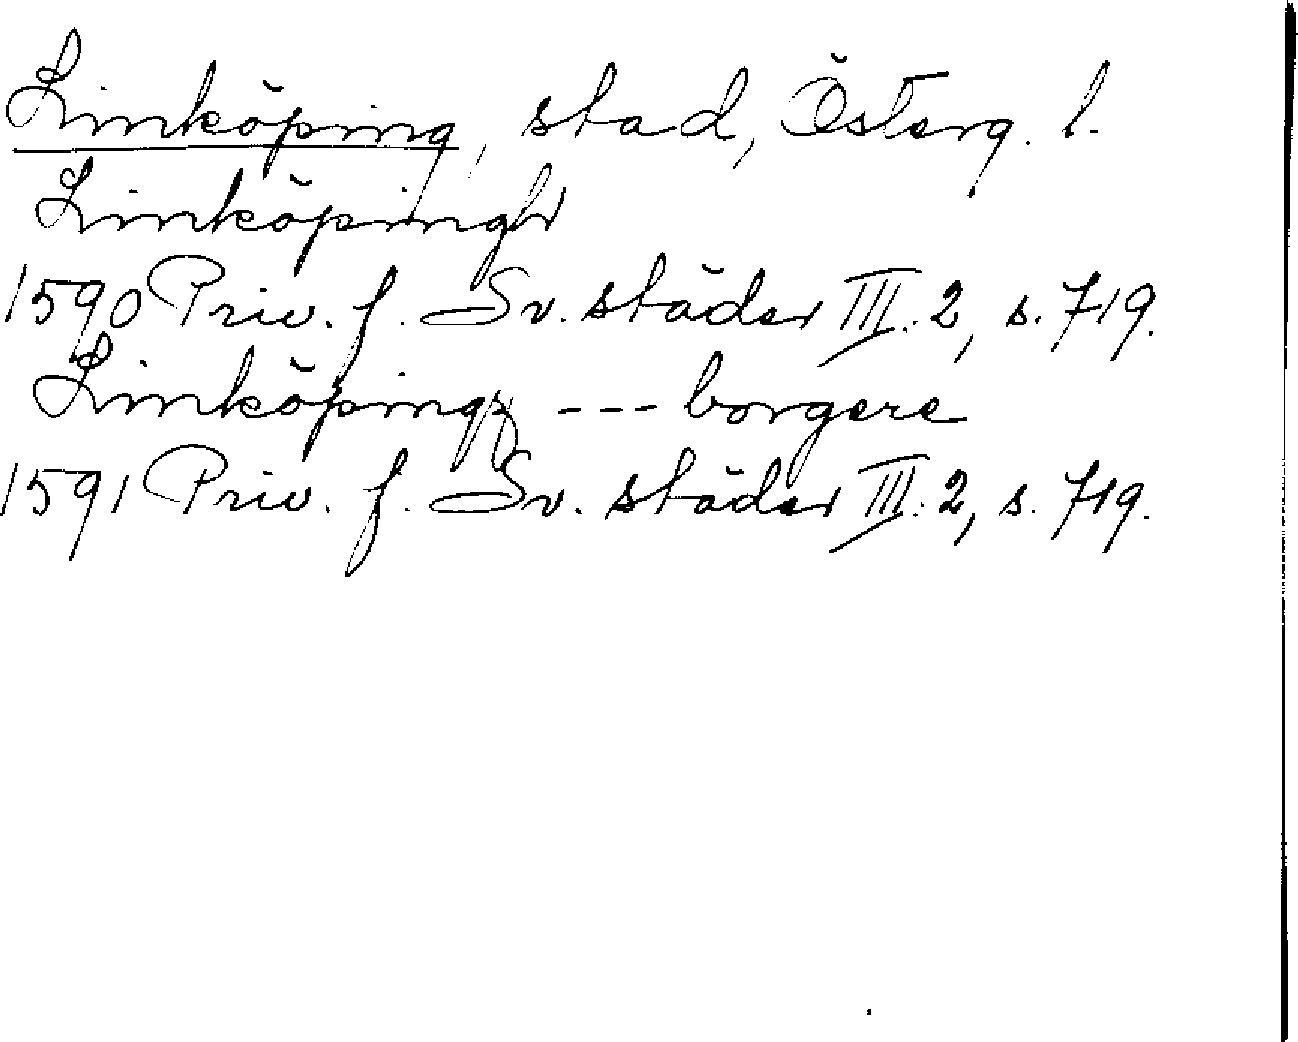 Linköping, stad, Österg. l.
Linköpingh
1590 Priv. f. Sv. städer III: 2, s. 719.
Linköpingz --- borgere
1591 Priv. f. Sv. städer III: 2, s. 719.